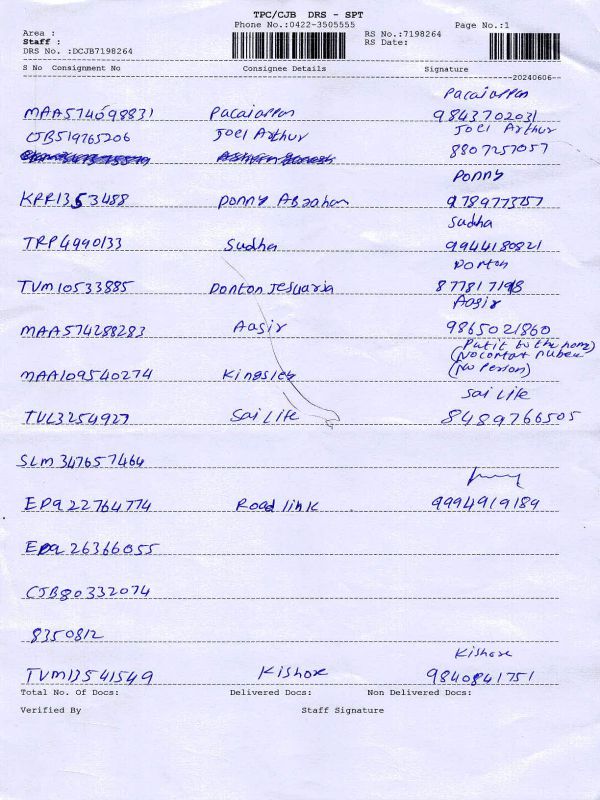 TPC/CJB DRS - SPT
Phone No.:0422-3505555 Page No.:1
Area : RS No.:7198264
Staff : RS Date:
DRS No. :DCJB7198264
S No Consignment No Consignee Details Signature
20240606
Pacaiappan
MAA574098831 Pacaiappan 9843702031
Joel Arthur
CJB519765206 Joel Arthur
8807257057
Donny
KRR1353488 Donny Abraham 9789773757
Sudha
TRP4990133 Sudha 9944180821
Donton
TVM10533885 Donton Jesuaria 877817198
Aasir
MAA574288283 Aasir 9865021860
(Putit to the home)
(No contat number)
MAA109540274 Kingsley (No Person)
Sai Life
TUL3254927 Sai Life 8489766505
SLM347657464
EDQ22764774 Road link 9994919189
EDQ26366055
CJB80332074
8350812
Kishore
TVM13541549 Kishore 9840841751
Total No. Of Docs: Delivered Docs: Non Delivered Docs:
Verified By Staff Signature